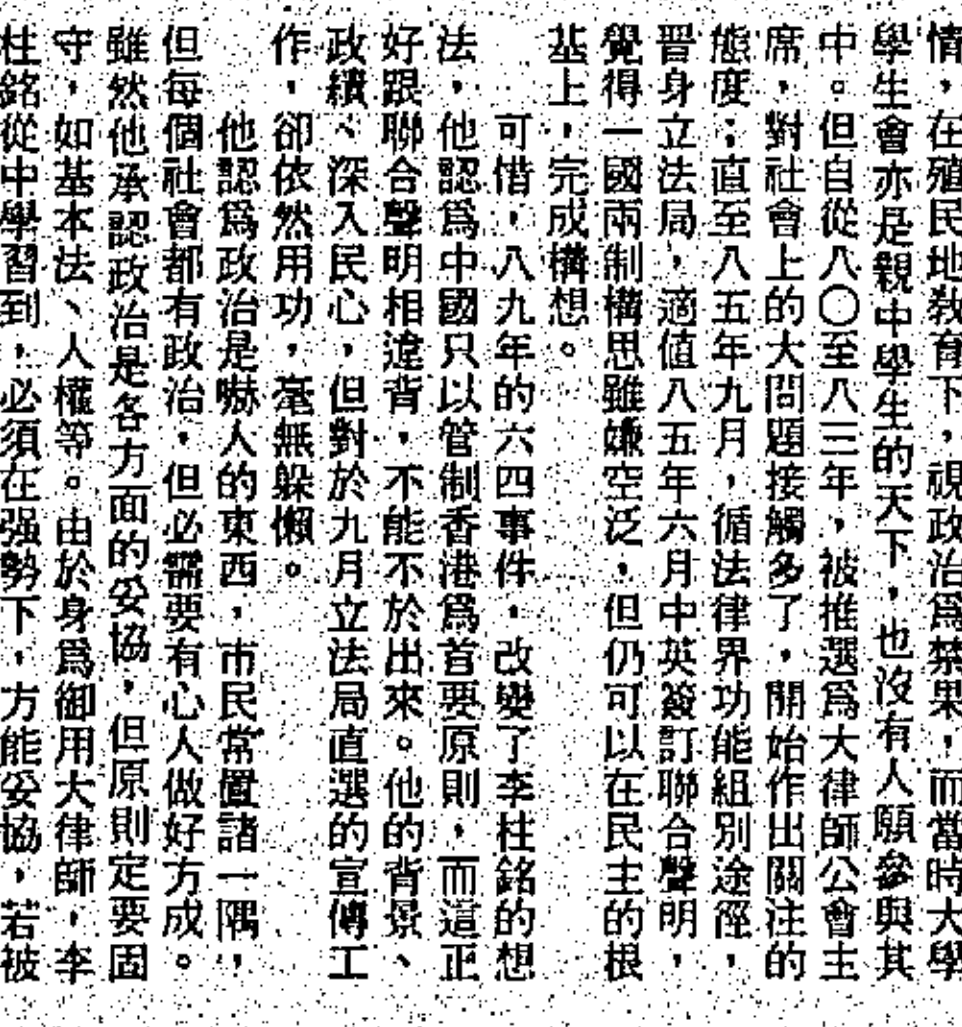 情，在殖民地教育下，視政治爲禁果，而當時大學
學生會亦是親中學生的天下，也沒有人願參與其
中。但自從八〇至八三年，被推選爲大律師公會主
席，對社會上的大問題接觸多了，開始作出關注的
態度；直至八五年九月，循法律界功能組別途徑，
晋身立法局，適值八五年六月中英簽訂聯合聲明，
覺得一國兩制構思雖嫌空泛，但仍可以在民主的根
基上，完成構想。
可惜，八九年的六四事件，改變了李柱銘的想
法，他認爲中國只以管制香港爲首要原則，而這正
好跟聯合聲明相違背，不能不於出來。他的背景、
政績、深入民心，但對於九月立法局直選的宣傳工
作，卻依然用功，毫無躲懶。
他認爲政治是嚇人的東西，市民常置諸一隅，
但每個社會都有政治，但必需要有心人做好方成。
雖然他承認政治是各方面的妥協，但原則定要固
守，如基本法、人權等。由於身爲御用大律師，李
柱銘從中學習到，必須在强勢下，方能妥協，若被